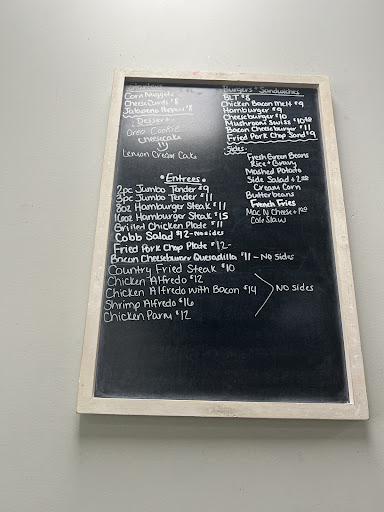 Corn Nuggets
Cheese Curds $8
Jalapeno Poppers $8
Dessert
Oreo Cookie
Cheesecake
Lemon Cream Cake
Burgers + Sandwiches
BLT $8
Chicken Bacon Melt $9
Hamburger $9
Cheeseburger $10
Mushroom & Swiss $10
Bacon Cheeseburger $11
Fried Pork Chop Sand $9
Sides
Fresh Green Beans
Rice + Gravy
Mashed Potato
Side Salad +
Cream Corn
Butterbeans
French Fries
Mac N Cheese +
Cole Slaw
• Entrees •
2pc Jumbo Tender $9
3pc Jumbo Tender $11
8oz Hamburger Steak $11
16oz Hamburger Steak $15
Grilled Chicken Plate $11
Cobb Salad $12 - No sides
Fried Pork Chop Plate $12-
Bacon Cheeseburger Quesadilla $11 - No sides
Country Fried Steak $10
Chicken Alfredo $12
Chicken Alfredo with Bacon $14
No sides
Shrimp Alfredo $16
Chicken Parm $12